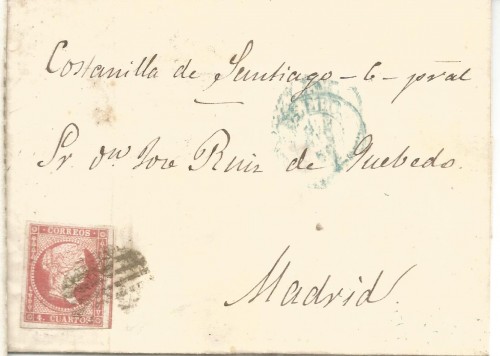 Costanilla de Santiago - 6 - pral
Sr. dn. Jose Ruiz de Quebedo.
Madrid.
CORREOS
4 CUARTOS